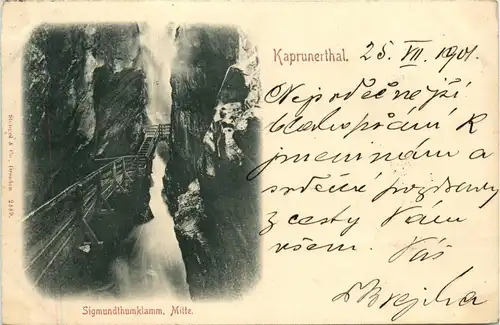 Kaprunerthal. 25. VII. 1901.
Nejsrdečnější
blahopřání k
jmeninám a
srdečné pozdravy
z cesty Vám
všem. Váš
Sigmundthumklamm, Mitte.
Stengel & Co., Dresden